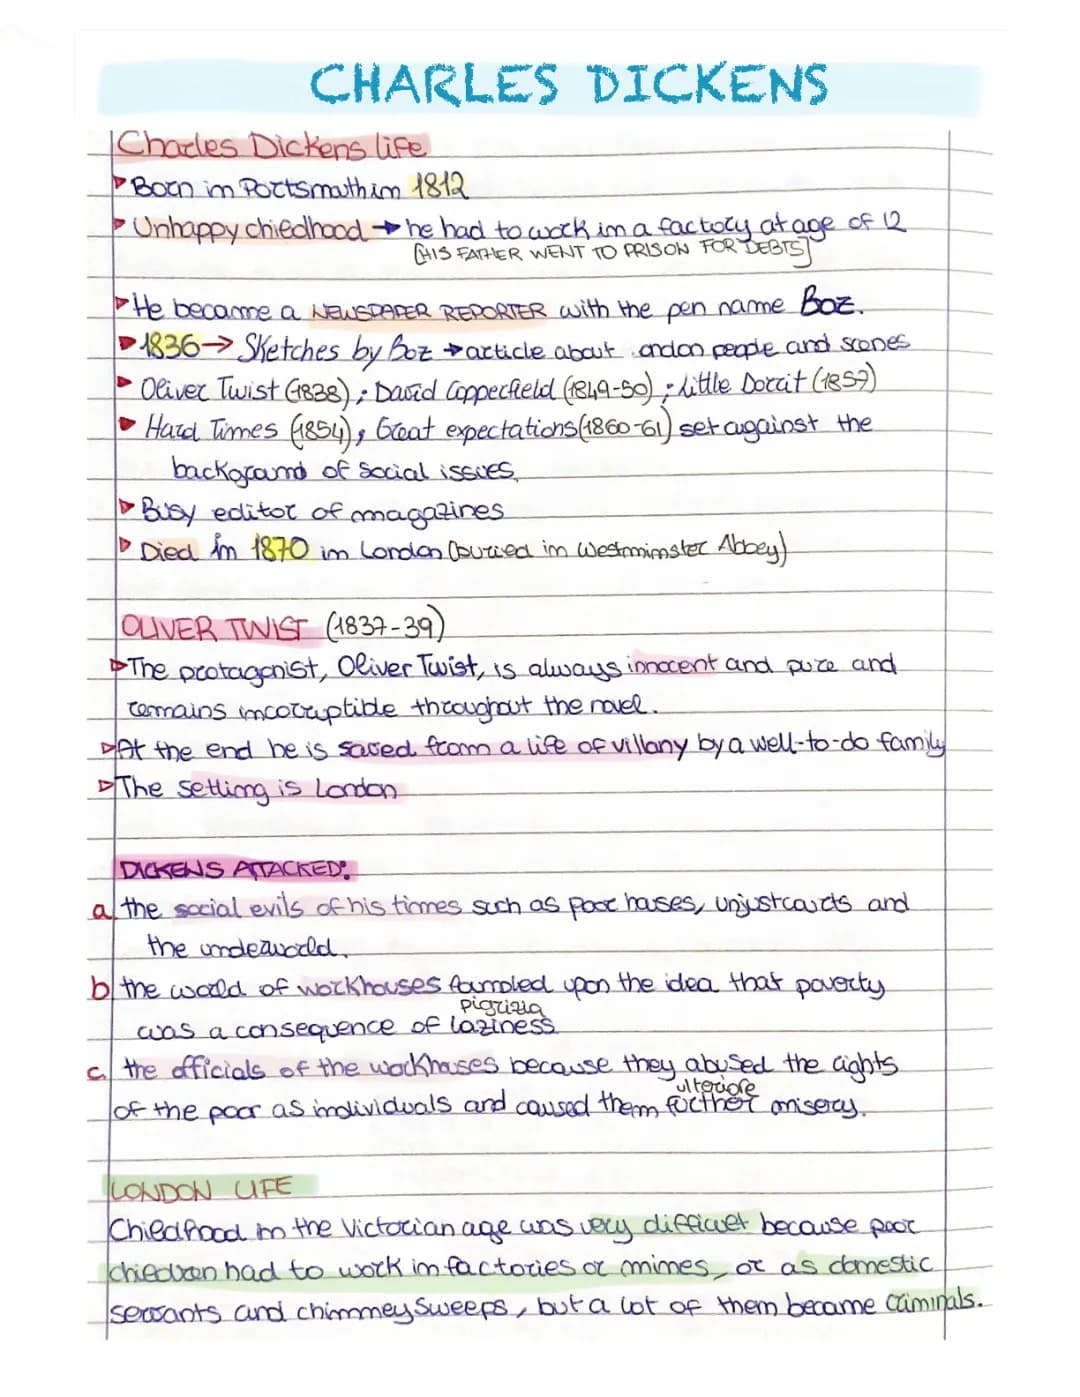 CHARLES DICKENS
Charles Dickens life
Born in Portsmouth in 1812
Unhappy childhood → he had to work in a factory at age of 12
[HIS FATHER WENT TO PRISON FOR DEBTS]
He became a NEWSPAPER REPORTER with the pen name Boz.
1836 → Sketches by Boz → article about ondon people and scenes
Oliver Twist (1838); David Copperfield (1849-50); Little Dorrit (1857)
Hard Times (1854), Great expectations (1860-61) set against the
background of social issues.
Busy editor of magazines
Died in 1870 in London (buried in Westminster Abbey)
OLIVER TWIST (1837-39)
The protagonist, Oliver Twist, is always innocent and pure and
remains incorruptible throughout the novel.
At the end he is saved from a life of villany by a well-to-do family
The setting is London
DICKENS ATTACKED:
a the social evils of his times such as poor houses, unjust courts and
the underworld.
b the world of workhouses founded upon the idea that poverty
pigrizia
was a consequence of laziness
c the officials of the workhouses because they abused the rights
ulteriore
of the poor as individuals and caused them further misery.
LONDON LIFE
Childhood in the Victorian age was very difficult because poor
children had to work in factories or mines, or as domestic
servants and chimney sweeps, but a lot of them became criminals.